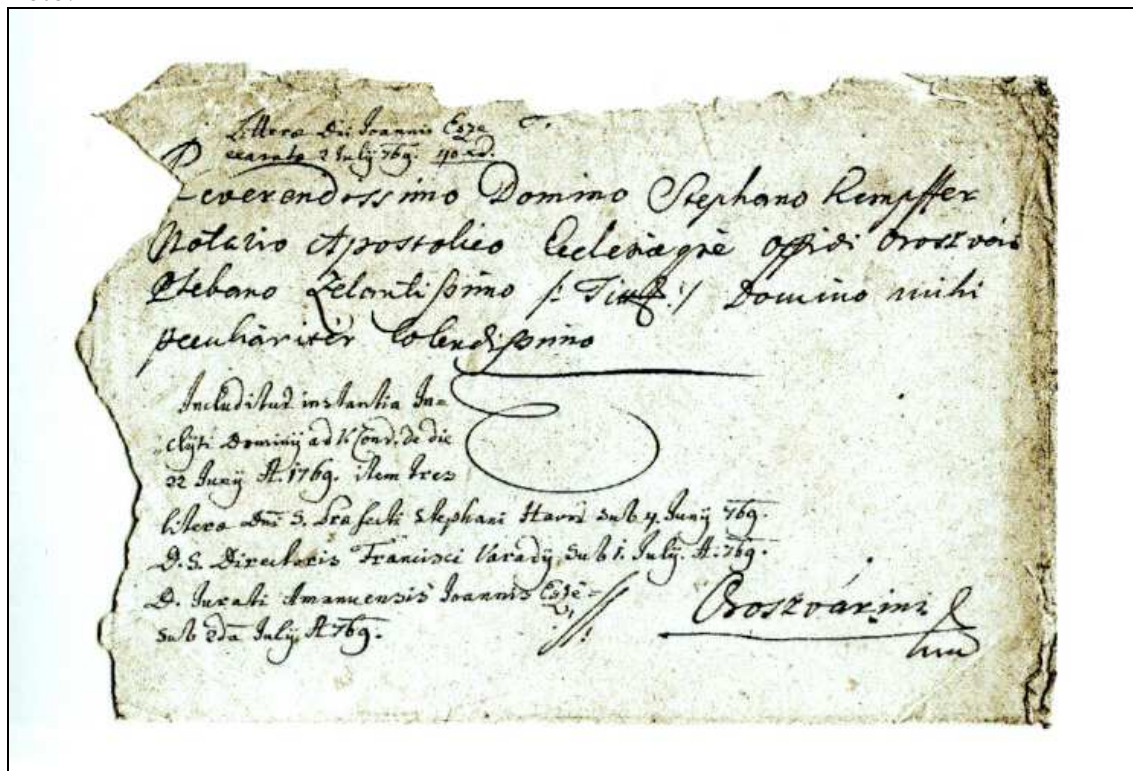 Litterae Dni Joannis Esze
exarata 2 July 769.
Reverendissimo Domino Stephano Kempffer
Notario Apostolico Ecclesiaeqre Oppidi Oroszvár
Plebano Zelantissimo /: :/ Domino mihi
peculiariter Colendissimo
Includitur instantia In=
„clyti Dominij ad Cond. de die
22 Junij A. 1769. item tres
litere Dni S. Praefecti Stephani Havri sub 4 Junij 769.
D. S. Directoris Francisci Varady, sub 1. July. A: 769.
D. Jurati Amanuensis Joannis Esze=
sub 2da July A 769.
Oroszvárini